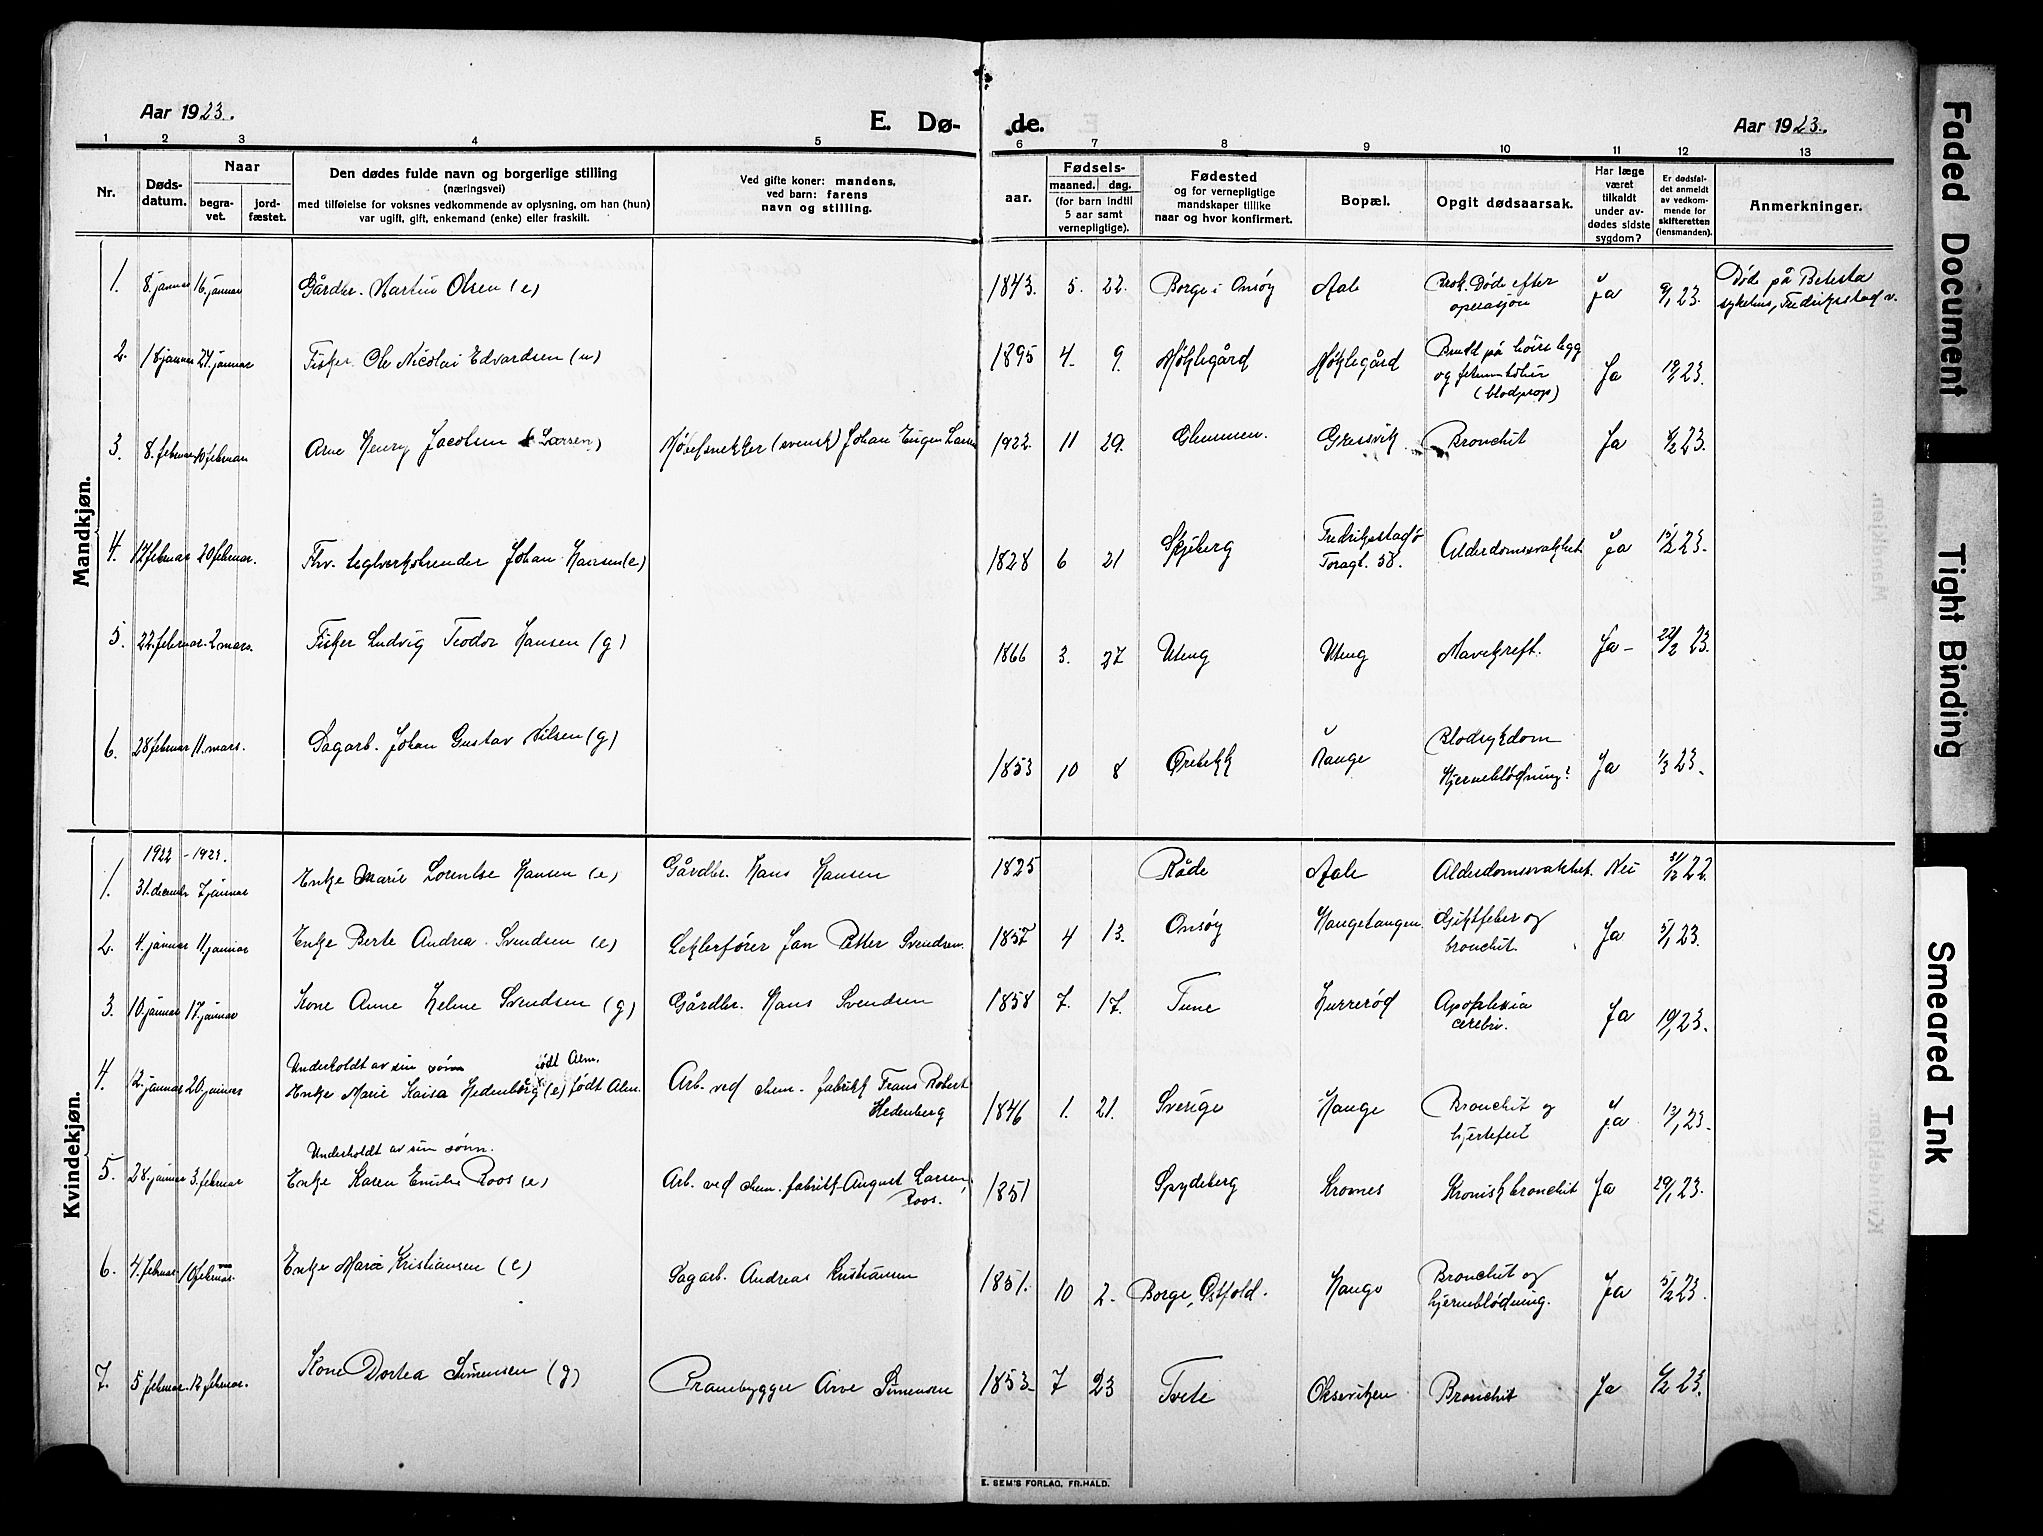 Aar 1923.
E. Dø-
de.
Aar 1923.
1 2 3 4 5 6 7 8 9 10 11 12 13
Nr.
Døds-
datum.
Naar
begra-
vet.
jord-
fæstet.
Den dødes fulde navn og borgerlige stilling
(næringsvei)
med tilføielse for voksnes vedkommende av oplysning, om han (hun)
var ugift, gift, enkemand (enke) eller fraskilt.
Ved gifte koner: mandens,
ved barn: farens
navn og stilling.
Fødsels-
aar.
maaned. dag.
(for barn indtil
5 aar samt
vernepligtige).
Fødested
og for vernepligtige
mandskaper tillike
naar og hvor konfirmert.
Bopæl.
Opgit dødsaarsak.
Har læge
været
tilkaldt
under av-
dødes sidste
sygdom?
Er dødsfal-
det anmeldt
av vedkom-
mende for
skifteretten
(lensmanden).
Anmerkninger.
Mandkjøn.
1. 8. januar 16. januar Gårdbr. Martin Olsen (e) 1843. 5. 22. Borge i Onsøy Aale Brok. Døde efter
operasjon Ja 9/1 23. Død på Betesta
sykehus, Fredrikstad v.
2. 18 januar 24. januar Fisker Ole Nicolai Edvardsen (u) 1895 4. 9. Møklegård Møklegård Brudd på høire legg
og
(blodprop) Ja 19/1 23.
3. 8. februar 10 februar Arne Henry Jacobsen (Larsen) Møbelsnekker (svensk) Johan Eugen Larsen 1922. 11 29. Glemmen. Gressvik Bronchit Ja 8/2 23.
4. 17 februar 20 februar. Fhv. teglverksbrender Johan Hansen (e) 1828 6 21 Skjeberg Fredrikstad ø
Toragt. 58. Alderdomssvakhet Ja 23.
5. 22. februar. 2 mars. Fisker Ludvig Teodor Hansen (g) 1866 3. 27 Uteng Uteng Mavekreft. Ja - 22/2 23.
6. 28 februar 11. mars. Sagarb. Johan Gustav Nilsen (g) 1853 10 8 Ørebekk Hauge Blodsykdom
Hjerneblødning? Ja 1/3 23.
Kvindekjøn.
1922 - 1923.
1. 31. december 7 januar Enke Marie Lorentse Hansen (e) Gårdbr. Hans Hansen 1825 Råde Aale Alderdomssvakhet. Nei 31/12 22.
2. 4. januar 11. januar Enke Berte Andrea Svendsen (e) Lekterfører Jan Petter Svendsen. 1857 4 13. Onsøy Haugetangen Giktfeber og
bronchit. Ja 5/1 23.
3. 10. januar 17. januar Kone Anne Helene Svendsen (g) Gårdbr. Hans Svendsen 1858 7. 17. Tune Hurrerød Apoplexia
cerebri. Ja 10/1 23.
Underholdt av sin sønn født Alm.
4. 12. januar 20. januar Enke Marie Kaisa Hedenberg (e) født Alm. Arb. ved chem. fabrikk Frans Robert
Hedenberg 1846 1. 21. Sverige Hauge Bronchit og
hjertefeil Ja 13/1 23.
Underholdt av sin sønn.
5. 28. januar 3. februar Enke Karen Emilie Roos (e) Arb. ved chem. fabrikk August Larsen
Roos. 1851 Spydeberg Kromes Kronisk bronchit Ja 29/1 23.
6. 4. februar 10 februar. Enke Marie Kristiansen (e) Sagarb. Andreas Kristiansen 1851. 10 2. Borge, Østfold. Hauge Bronchit og
hjerneblødning. Ja 5/2 23.
7. 5 februar. 12 februar. Kone Dortea Simensen (g) Prambygger Arve Simensen 1853. 7 23 Tvete Oksvikjen Bronchit Ja 6/2 23.
E. SEM'S FORLAG, FR.HALD.
Faded Document
Tight Binding
Smeared Ink